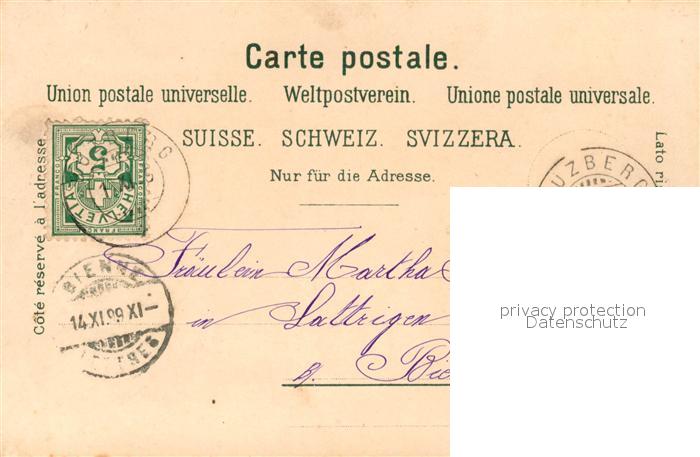 Carte postale.
Union postale universelle. Weltpostverein. Unione postale universale.
SUISSE. SCHWEIZ. SVIZZERA.
Nur für die Adresse.
Côté réservé à l'adresse.
Lato ri
5
FRANCO
HELVETIA
UZBERG
BIENNE
14.XI.99.XI-
LETTRES
Fräulein Martha
in Lattrigen
b. Bie
privacy protection
Datenschutz